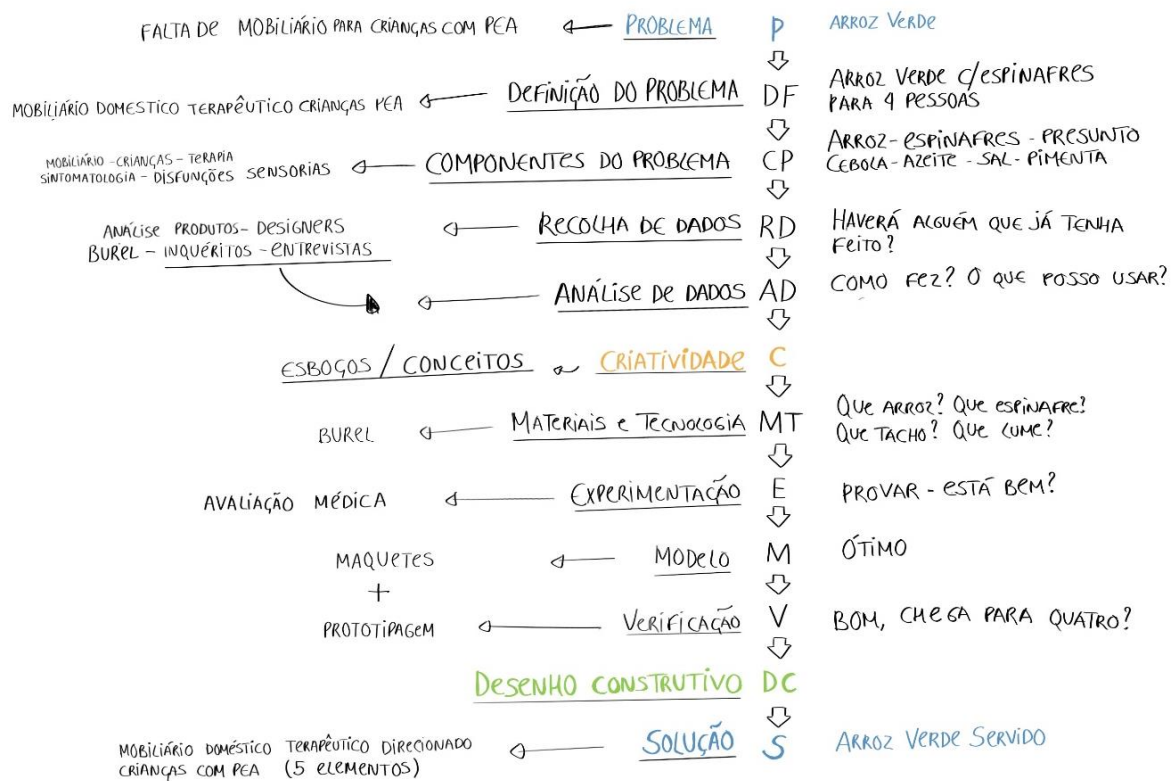 FALTA DE MOBILIÁRIO PARA CRIANÇAS COM PEA PROBLEMA P ARROZ VERDE
MOBILIÁRIO DOMESTICO TERAPÊUTICO CRIANÇAS PEA DEFINIÇÃO DO PROBLEMA DF ARROZ VERDE C/ESPINAFRES
PARA 4 PESSOAS
MOBILIÁRIO - CRIANÇAS - TERAPIA
SINTOMATOLOGIA - DISFUNÇÕES SENSORIAS COMPONENTES DO PROBLEMA CP ARROZ - ESPINAFRES - PRESUNTO
CEBOLA - AZEITE - SAL - PIMENTA
ANÁLISE PRODUTOS - DESIGNERS
BUREL - INQUÉRITOS - ENTREVISTAS RECOLHA DE DADOS RD HAVERÁ ALGUÉM QUE JÁ TENHA
FEITO?
ANÁLISE DE DADOS AD COMO FEZ? O QUE POSSO USAR?
ESBOÇOS / CONCEITOS CRIATIVIDADE C
BUREL MATERIAIS E TECNOLOGIA MT QUE ARROZ? QUE ESPINAFRE?
QUE TACHO? QUE LUME?
AVALIAÇÃO MÉDICA EXPERIMENTAÇÃO E PROVAR - ESTÁ BEM?
MAQUETES MODELO M ÓTIMO
+
PROTOTIPAGEM VERIFICAÇÃO V BOM, CHEGA PARA QUATRO?
DESENHO CONSTRUTIVO DC
MOBILIÁRIO DOMÉSTICO TERAPÊUTICO DIRECIONADO
CRIANÇAS COM PEA (5 ELEMENTOS) SOLUÇÃO S ARROZ VERDE SERVIDO